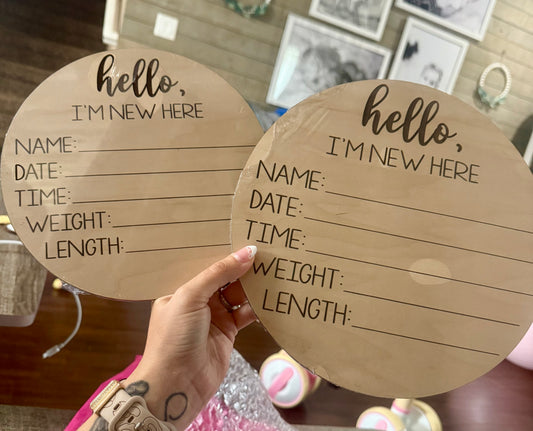 hello,
I'M NEW HERE
NAME:
DATE:
TIME:
WEIGHT:
LENGTH:
hello,
I'M NEW HERE
NAME:
DATE:
TIME:
WEIGHT:
LENGTH: